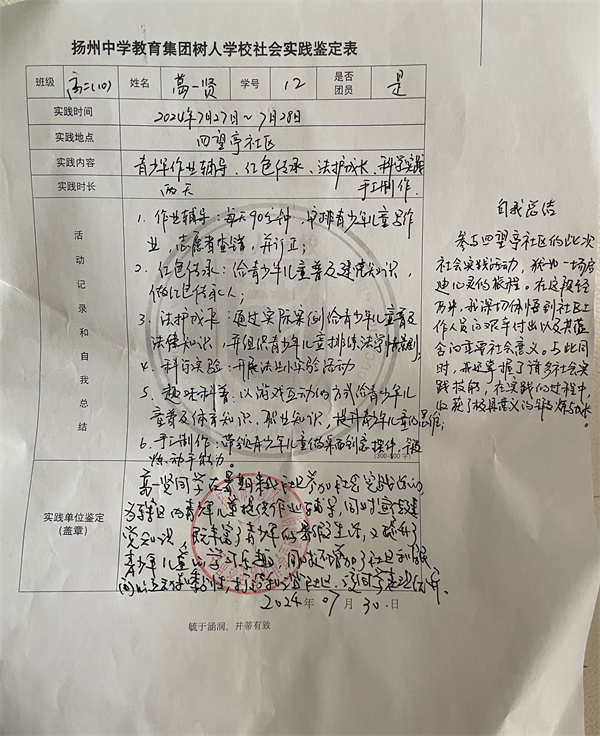 扬州中学教育集团树人学校社会实践鉴定表
班级 高二(10) 姓名 葛一贤 学号 12 是否团员 是
实践时间 2024年7月27日~7月28日
实践地点 四望亭社区
实践内容 青少年作业辅导、红色传承、法护成长、科学实践
实践时长 两天 手工制作.
活动记录和自我总结
1. 作业辅导：每天90分钟，安排青少年儿童写作
业，志愿者查错，并订正；
2. 红色传承：给青少年儿童普及党建知识，
做红色传承人；
3. 法护成长：通过实际案例给青少年儿童普及
法律知识，并组织青少年儿童排练法学情景剧；
4. 科学实验：开展法业小实验活动
5. 趣味科普：以游戏互动的方式给青少年儿
童普及体育知识、职业知识，提升青少年儿童的思维；
6. 手工制作：带领青少年儿童做果西创意摆件，锻
炼动手能力。
(300-500字)
自我总结
参与四望亭社区的此次
社会实践活动，犹如一场启
迪心灵的旅程。在这段经
历中，我深切体悟到社区工
作人员的艰辛付出以及其蕴
含的重要社会意义。与此同
时，我还掌握了诸多社会实
践技能，在实践的过程中，
收获了极具意义的锻炼与成长。
实践单位鉴定
(盖章)
贤同学在暑期来我社区参加社会实践活动，
为辖区内青少年儿童提供作业辅导，同时
党知识，既丰富了青少年的暑假生活，又提升了
青少年儿童的学习乐趣，同时
2024年07月30日
毓于涵润，并蒂有致